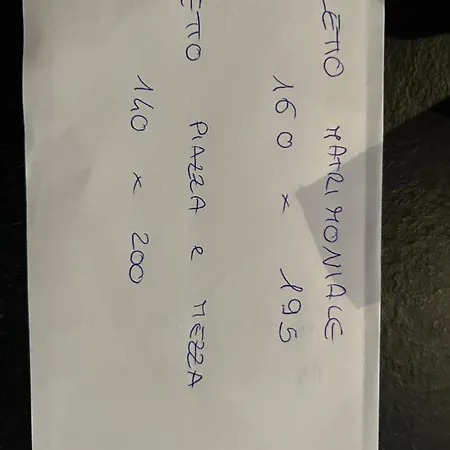 LETTO MATRIMONIALE
160 x 195
ETTO PIAZZA e MEZZA
140 x 200